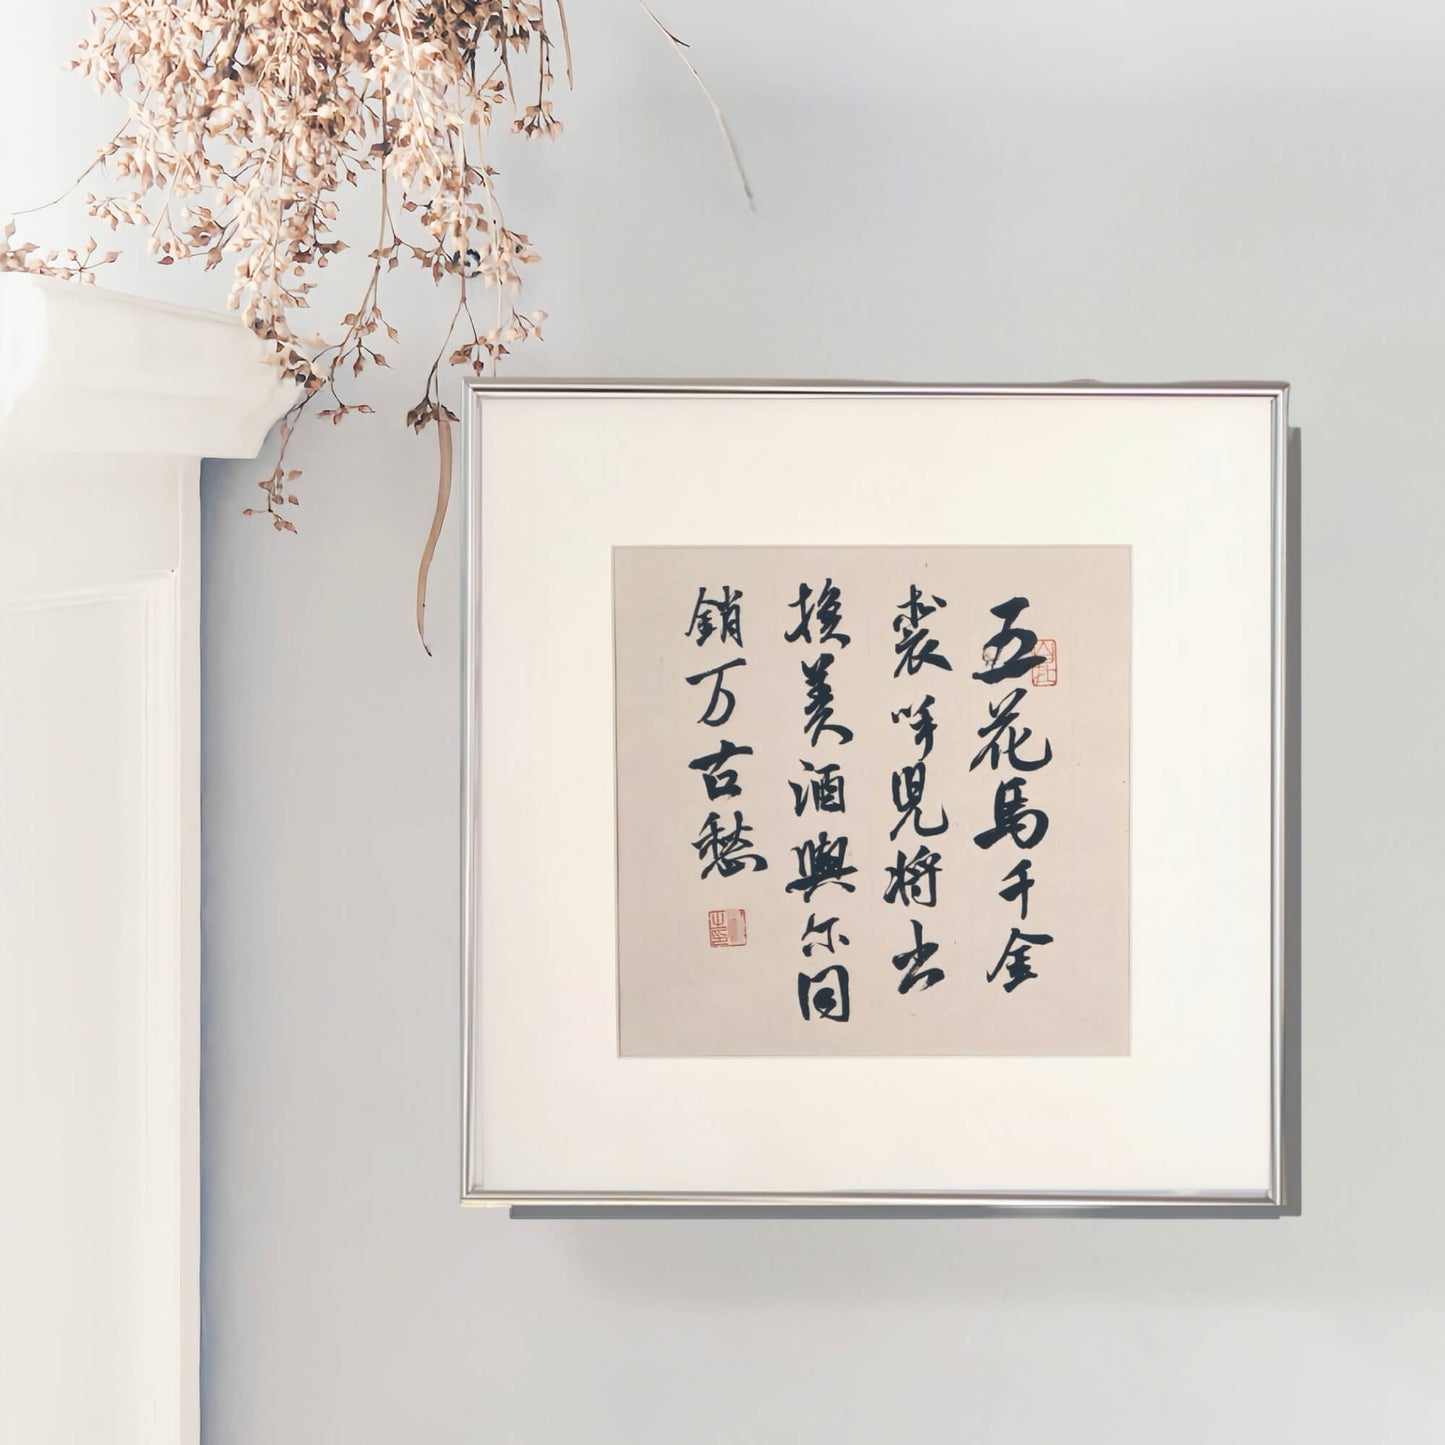 五花馬千金
裘呼兒將出
換美酒與尔同
銷万古愁